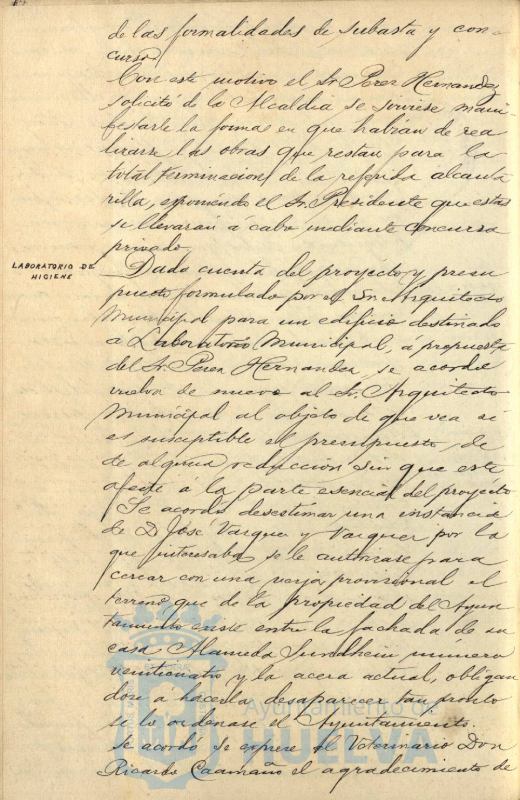 de las formalidades de subasta y con-
curso
Con este motivo el Sr. Perez Hernandez
solicitó de la Alcaldia se sirviese mani-
festarle la forma en que habrian de rea
lizarse las obras que restan para la
total terminacion de la referida alcanta
rilla, exponiendo el Sr. Presidente que estas
se llevarán á cabo mediante concurso
privado.
LABORATORIO DE
HIGIENE
Dada cuenta del proyecto y presu
puesto formulado por el Sr. Arquitecto
Municipal para un edificio destinado
á Laboratorio Municipal, á propuesta
del Sr. Perez Hernandez, se acordó
vuelva de nuevo al Sr. Arquitecto
Municipal al objeto de que vea si
es susceptible el presupuesto de
de alguna reducción sin que este
afecte á la parte esencial del proyecto
Se acordó desestimar una instancia
de D. José Vazquez y Vazquez por la
que interesaba se le autorizase para
cercar con una verja provisional el
terreno que de la propiedad del Ayun
tamiento existe entre la fachada de su
casa Alameda Sundheim número
veinticuatro y la acera actual, obligan
dose á hacerla desaparecer tan pronto
se lo ordenase el Ayuntamiento.
Se acordó se exprese al Veterinario Don
Ricardo Caamaño el agradecimiento de
Ayuntamiento de
HUELVA